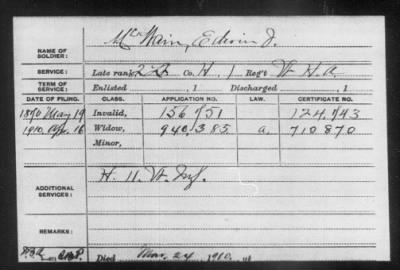 McWain, Edwin J.
NAME OF SOLDIER:
SERVICE: Late rank, Co. H, 1 Reg't Vt H.A.
TERM OF SERVICE: Enlisted , 1 Discharged , 1
DATE OF FILING. CLASS. APPLICATION NO. LAW. CERTIFICATE NO.
1870 May 19 Invalid, 156751 124,743
1910, Apr. 16 Widow, 940,385 a, 710870
Minor,
ADDITIONAL SERVICES: H. 11 Vt Inf.
REMARKS:
Died Mar. 24, 1910, at